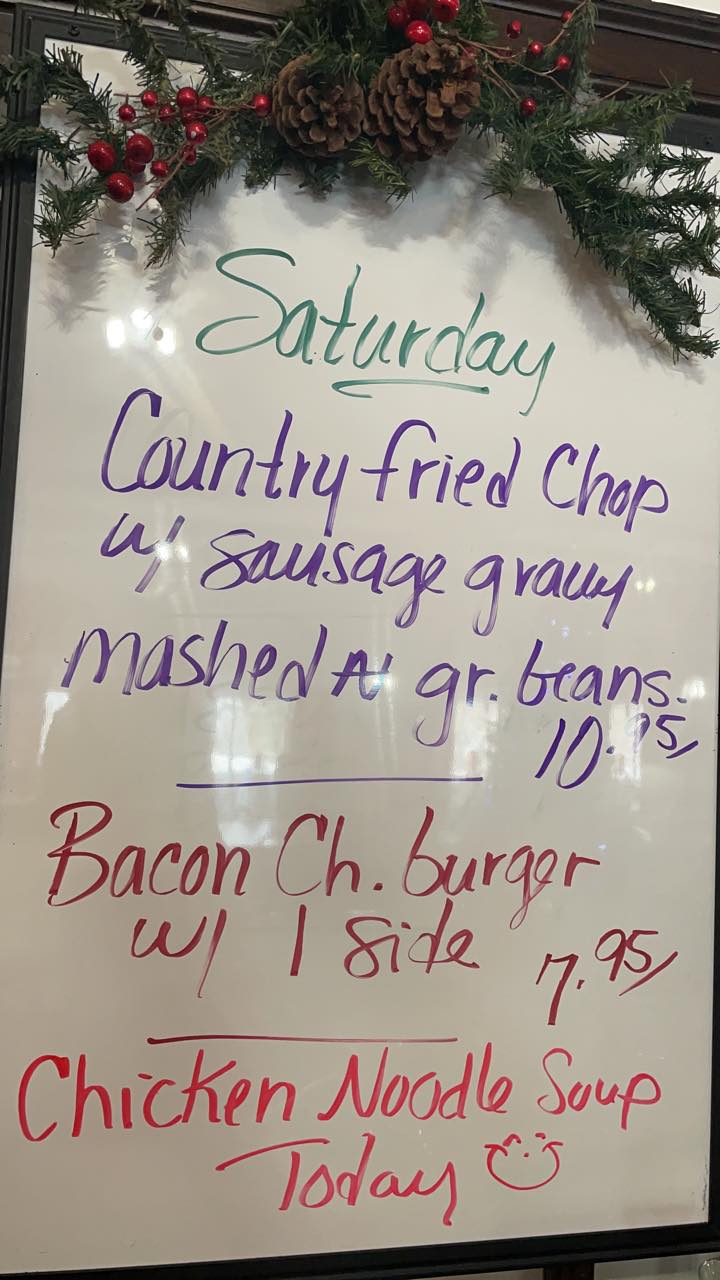 Saturday
Country fried Chop
w/ Sausage gravy
mashed N gr. beans.
10.95
Bacon Ch. burger
w/ 1 Side 7.95
Chicken Noodle Soup
Today